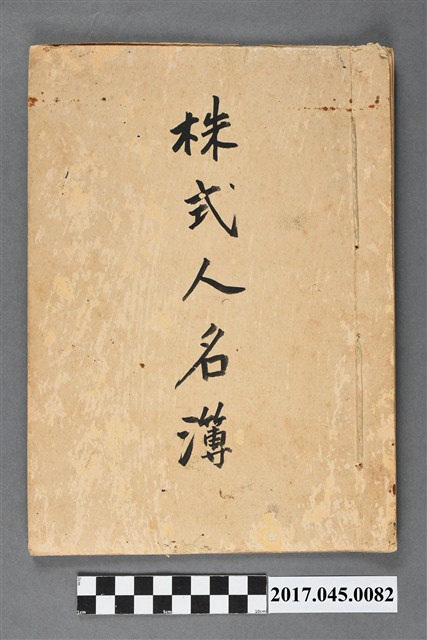 株式人名簿
2017.045.0082
1cm
5cm
10cm